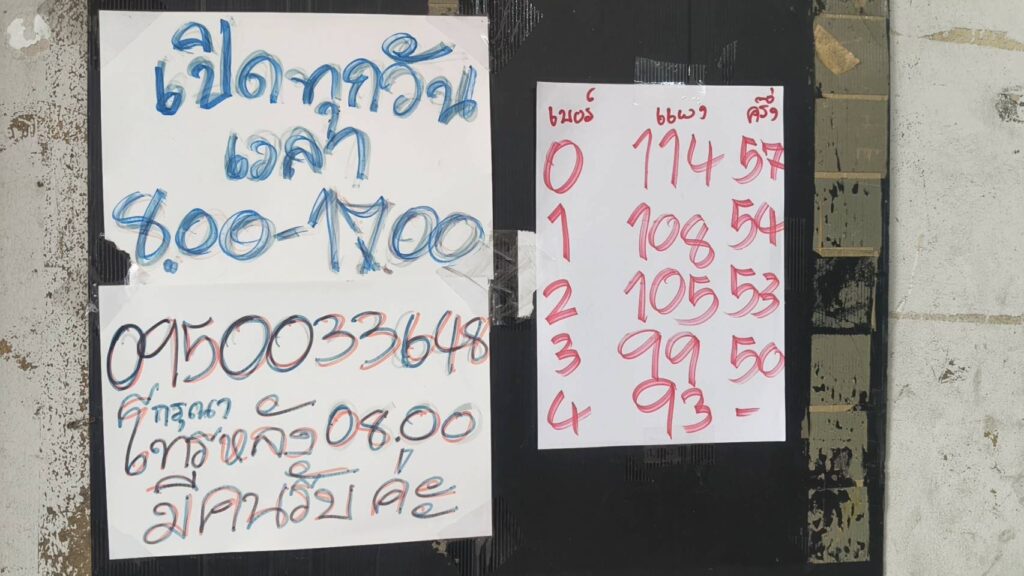 เปิดทุกวัน
เวลา
8.00-17.00
0950033648
กรุณา
โทรหลัง 08.00
มีคนรับ ค่ะ
เบอร์ แผง ครึ่ง
0 114 57
1 108 54
2 105 53
3 99 50
4 93 -